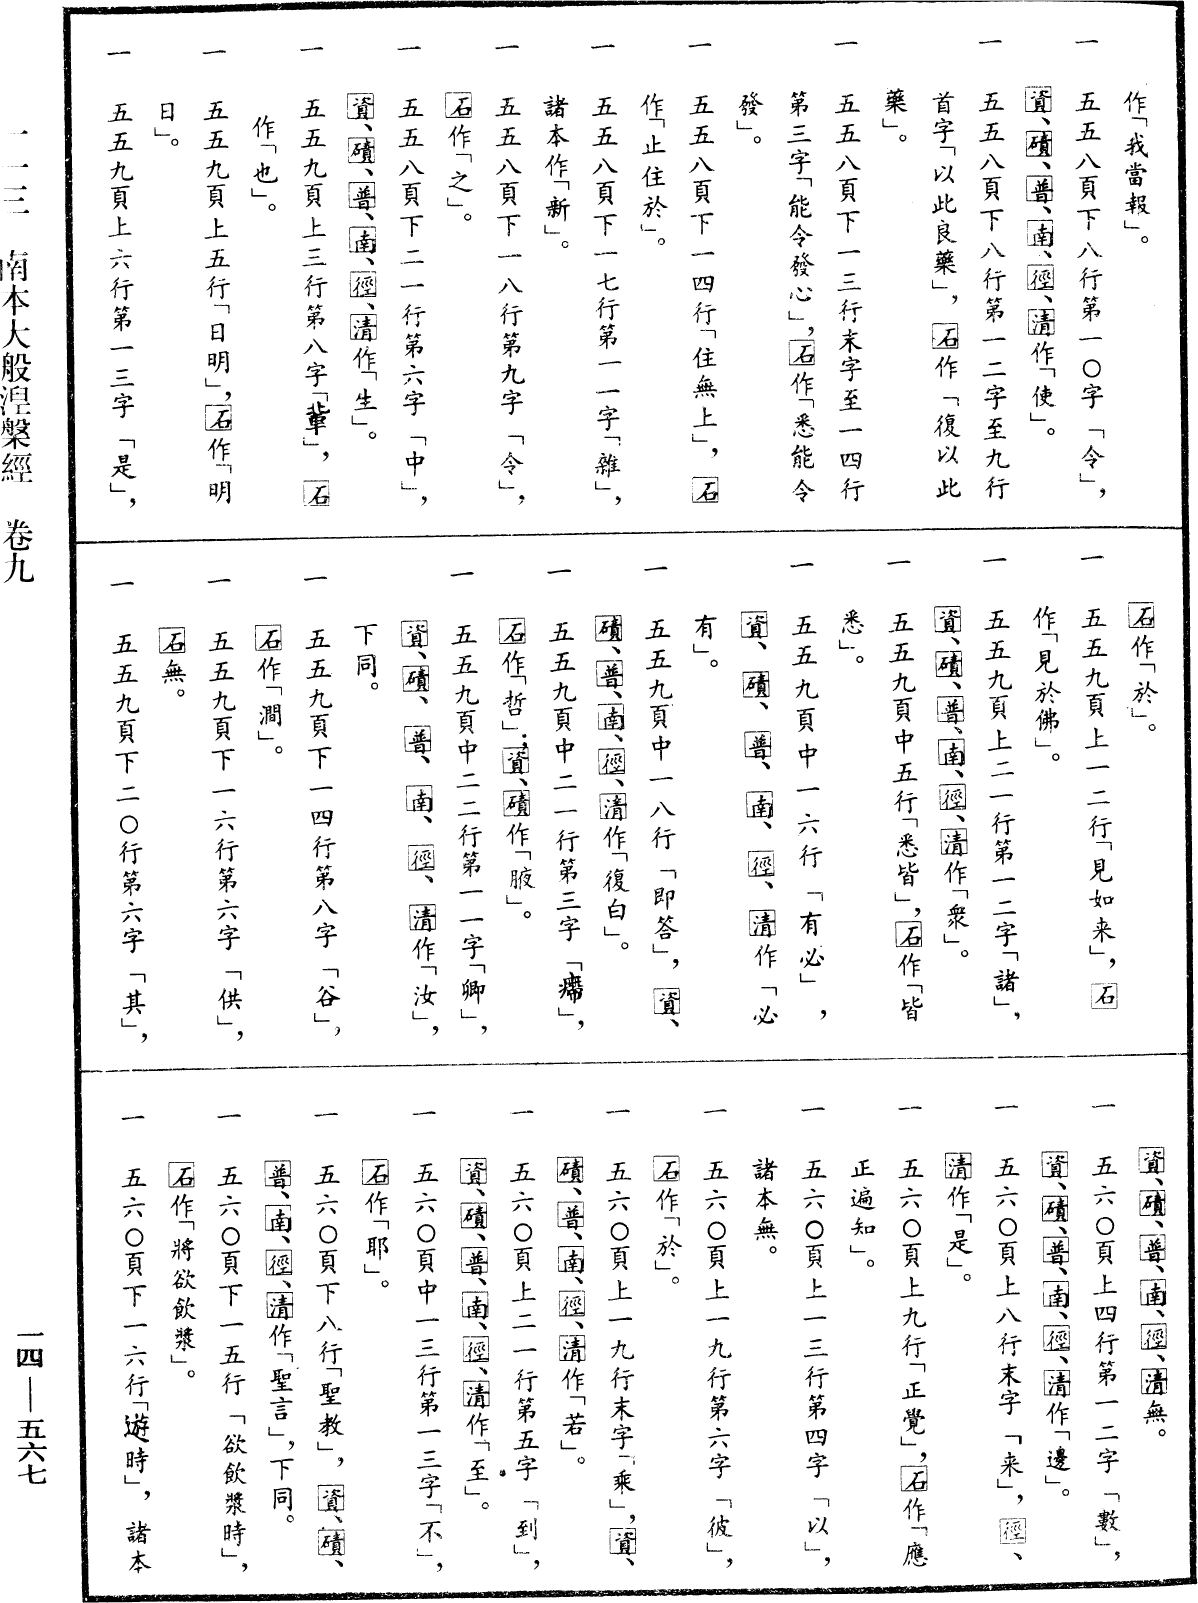 作「我當報」。
一　五五八頁下八行第一〇字「令」，
資、磧、普、南、徑、清作「使」。
一　五五八頁下八行第一二字至九行
首字「以此良藥」，石作「復以此
藥」。
一　五五八頁下一三行末字至一四行
第三字「能令發心」，石作「悉能令
發」。
一　五五八頁下一四行「住無上」，石
作「止住於」。
一　五五八頁下一七行第一一字「雜」，
諸本作「新」。
一　五五八頁下一八行第九字「令」，
石作「之」。
一　五五八頁下二一行第六字「中」，
資、磧、普、南、徑、清作「生」。
一　五五九頁上三行第八字「輩」，石
作「也」。
一　五五九頁上五行「日明」，石作「明
日」。
一　五五九頁上六行第一三字「是」，
石作「於」。
一　五五九頁上一二行「見如来」，石
作「見於佛」。
一　五五九頁上二一行第一二字「諸」，
資、磧、普、南、徑、清作「衆」。
一　五五九頁中五行「悉皆」，石作「皆
悉」。
一　五五九頁中一六行「有必」，
資、磧、普、南、徑、清作「必
有」。
一　五五九頁中一八行「即答」，資、
磧、普、南、徑、清作「復白」。
一　五五九頁中二一行第三字「㿃」，
石作「哲」；資、磧作「腋」。
一　五五九頁中二二行第一一字「卿」，
資、磧、普、南、徑、清作「汝」，
下同。
一　五五九頁下一四行第八字「谷」，
石作「澗」。
一　五五九頁下一六行第六字「供」，
石無。
一　五五九頁下二〇行第六字「其」，
資、磧、普、南、徑、清無。
一　五六〇頁上四行第一二字「數」，
資、磧、普、南、徑、清作「邊」。
一　五六〇頁上八行末字「来」，徑、
清作「是」。
一　五六〇頁上九行「正覺」，石作「應
正遍知」。
一　五六〇頁上一三行第四字「以」，
諸本無。
一　五六〇頁上一九行第六字「彼」，
石作「於」。
一　五六〇頁上一九行末字「乘」，資、
磧、普、南、徑、清作「若」。
一　五六〇頁上二一行第五字「到」，
資、磧、普、南、徑、清作「至」。
一　五六〇頁中一三行第一三字「不」，
石作「耶」。
一　五六〇頁下八行「聖教」，資、磧、
普、南、徑、清作「聖言」，下同。
一　五六〇頁下一五行「欲飲漿時」，
石作「將欲飲漿」。
一　五六〇頁下一六行「遊時」，諸本
二一三　南本大般涅槃經　卷九
一四—五六七